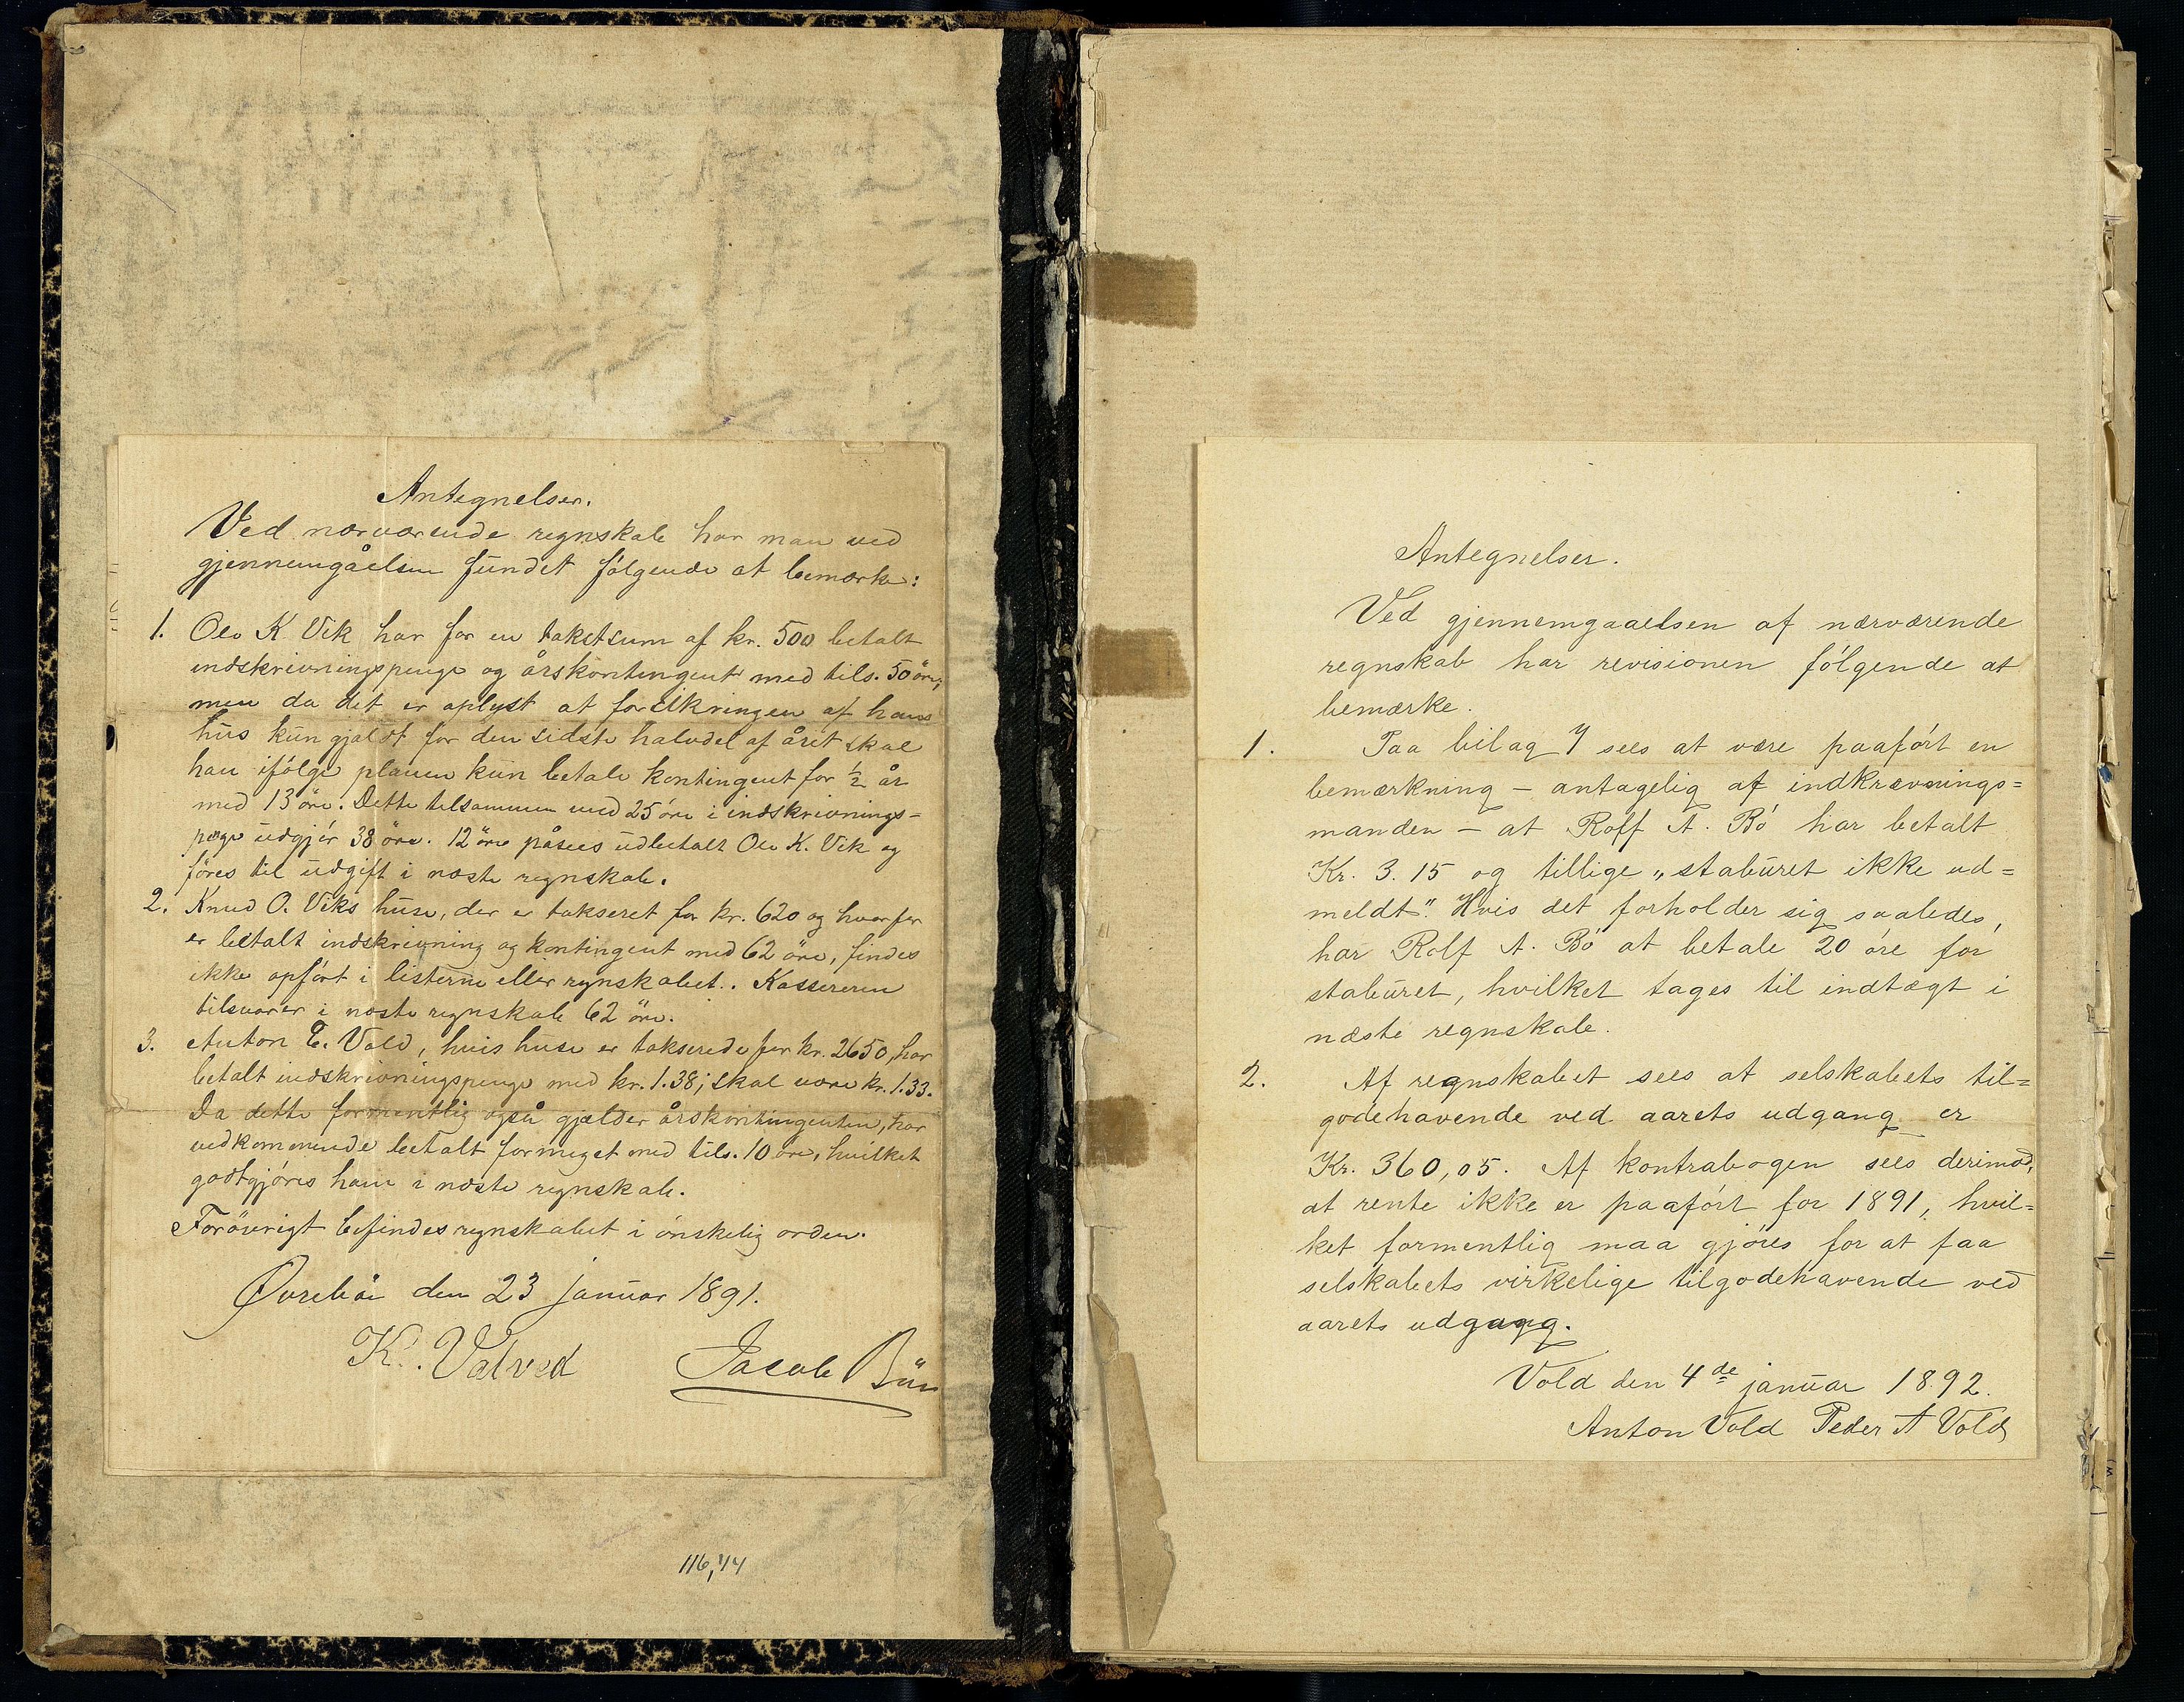 Antegnelser.
Ved nærværende regnskab har man ved
gjennemgåelsen fundet følgende at bemærke:
1. Ole K. Vik har for en takstsum af kr. 500 betalt
indskrivningspenge og årskontingent med tils. 50 öre;
men da det er oplyst at forsikringen af hans
hus kun gjaldt for den sidste halvdel af året skal
han ifölge planen kun betale kontingent for ½ år
med 13 öre. Dette tilsammen med 25 öre i indskrivnings-
penge udgjör 38 öre. 12 öre påsees udbetalt Ole K. Vik og
föres til udgift i næste regnskab.
2. Knud O. Viks huse, der er takseret for kr. 620 og hvorfor
er betalt indskrivning og kontingent med 62 öre, findes
ikke opfört i listerne eller regnskabet. Kassereren
tilsvarer i næste regnskab 62 öre.
3. Anton E. Vold, hvis huse er takserede for kr. 2650, har
betalt indskrivningspenge med kr. 1.38; skal være kr. 1.33.
Da dette formentlig også gjælder årskontingenten, har
vedkommende betalt formeget med tils. 10 öre, hvilket
godtgjöres ham i næste regnskab.
Forövrigt befindes regnskabet i önskelig orden.
Øvrebö den 23 januar 1891.
K. Vatved Jacob
116,44
Antegnelser.
Ved gjennemgaaelsen af nærværende
regnskab har revisionen fölgende at
bemærke.
1. Paa bilag 7 sees at være paafört en
bemærkning – antagelig af indkrævnings=
manden – at Rolf A. Bö har betalt
Kr. 3.15 og tillige „staburet ikke ud=
meldt". Hvis det forholder sig saaledes,
har Rolf A. Bö at betale 20 öre for
staburet, hvilket tages til indtægt i
næste regnskab.
2. Af regnskabet sees at selskabets til=
godehavende ved aarets udgang er
Kr. 360,05. Af kontrabogen sees derimod,
at rente ikke er paafört for 1891, hvil=
ket formentlig maa gjöres for at faa
selskabets virkelige tilgodehavende ved
aarets udgang.
Vold den 4de januar 1892.
Anton Vold Peder A Vold